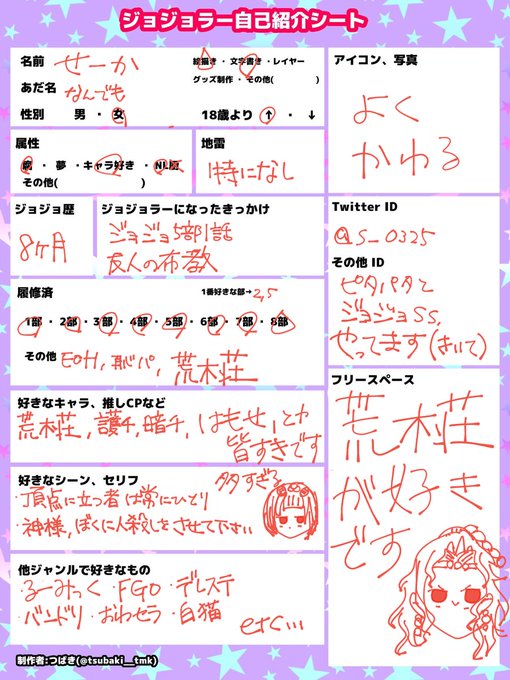 ジョジョラー自己紹介シート
名前 せーか
あだ名 なんでも
性別 男 ・ 女
絵描き ・ 文字書き ・ レイヤー
グッズ制作 ・ その他( )
18歳より ↑ ・ ↓
アイコン、写真
よく
かわる
属性
腐 ・ 夢 ・ キャラ好き ・ NL厨
その他( )
地雷
特になし
ジョジョ歴
8ヶ月
ジョジョラーになったきっかけ
ジョジョ5部1話
友人の布教
Twitter ID
@S_0325
その他 ID
ピタパタと
ジョジョSS,
やってます(きいて)
履修済
1番好きな部→2,5
1部 ・ 2部 ・ 3部 ・ 4部 ・ 5部 ・ 6部 ・ 7部 ・ 8部
その他 EOH, 恥パ, 荒木荘
好きなキャラ、推しCPなど
荒木荘, 護チ, 暗チ, はもせ, とか
皆すきです
好きなシーン、セリフ
多すぎる
・頂点に立つ者は常にひとり
・神様, ぼくに人殺しをさせて下さい
フリースペース
荒木荘
が好き
です
他ジャンルで好きなもの
・るーみっく ・FGO ・デレステ
・バンドリ ・おわセラ ・白猫
etc...
制作者:つばき(@tsubaki__tmk)